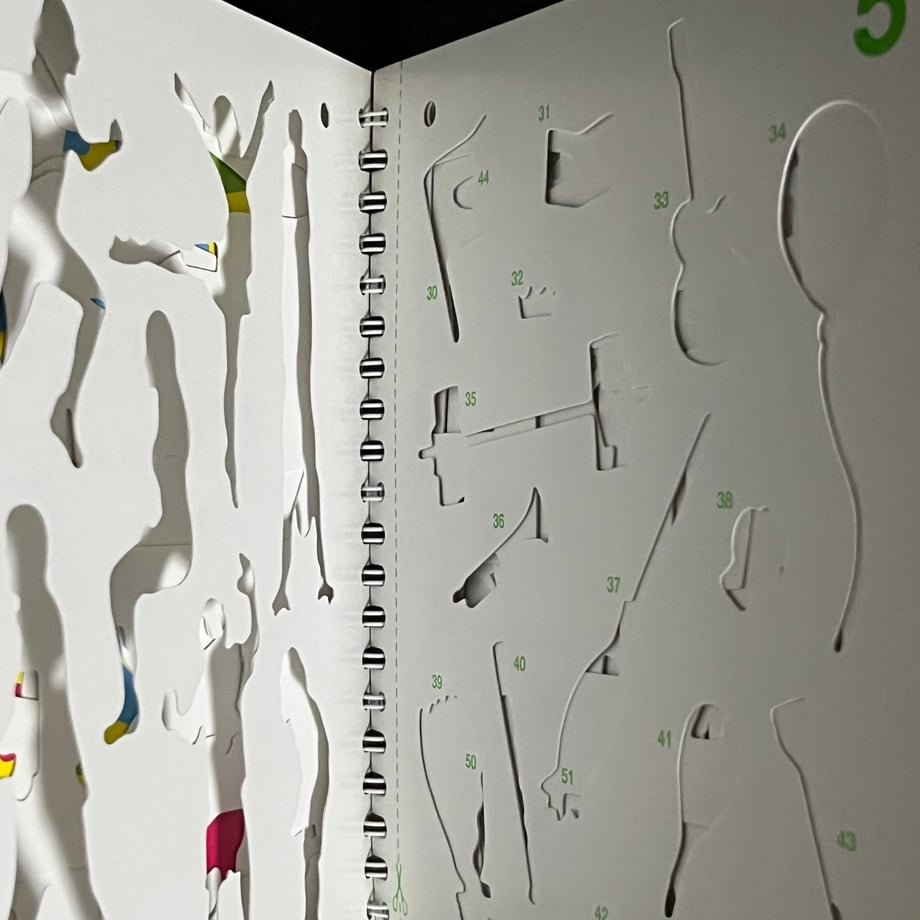 5
31
34
44
33
32
30
35
38
36
37
40
39
41
50
51
43
42